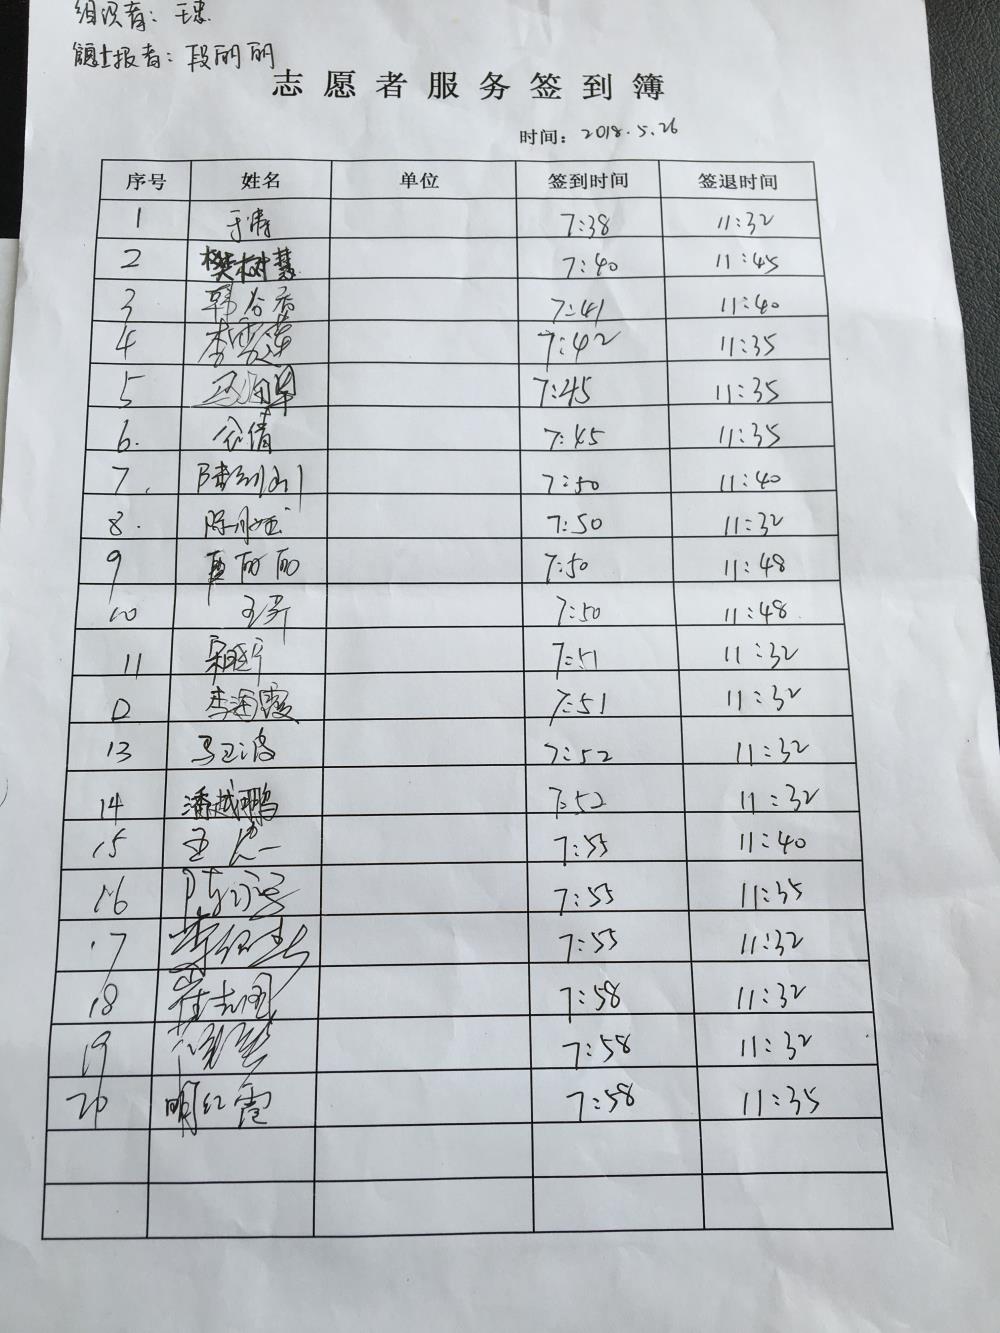 组织者：王忠
信息上报者：段丽丽
志愿者服务签到簿
时间：2018.5.26
序号 姓名 单位 签到时间 签退时间
1 于涛 7:38 11:32
2 樊树慧 7:40 11:45
3 韩谷香 7:41 11:40
4 李雪莲 7:42 11:35
5 7:45 11:35
6. 谷倩 7:45 11:35
7. 7:50 11:40
8. 7:50 11:32
9 7:50 11:48
10 王昕 7:50 11:48
11 7:51 11:32
12 李海霞 7:51 11:32
13 马卫波 7:52 11:32
14 潘越鹏 7:52 11:32
15 7:55 11:40
16 7:55 11:35
17 7:55 11:32
18 崔志国 7:58 11:32
19 7:58 11:32
20 明红霞 7:58 11:35